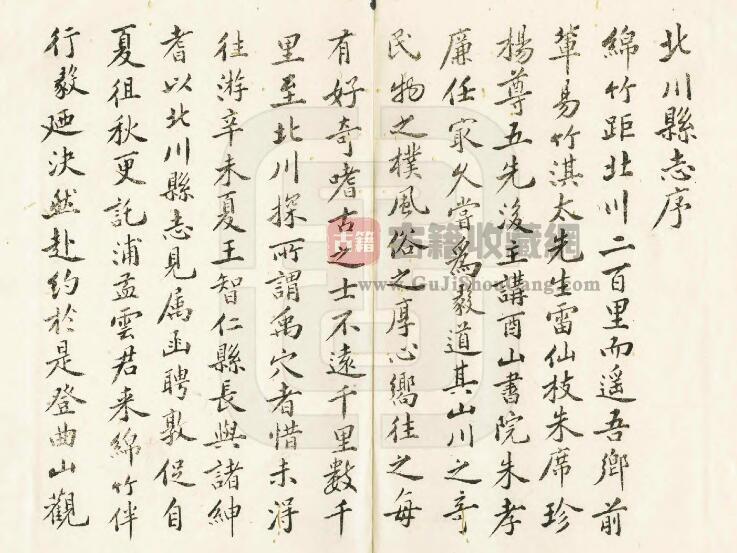 北川縣志序
綿竹距北川二百里而遥吾鄉前
輩易竹淇太先生雷仙枝朱席珍
楊尊五先後主講酉山書院朱孝
廉任家久嘗為敎道其山川之奇
民物之樸風俗之厚心嚮往之每
有好奇嗜古之士不遠千里數千
里至北川探所謂禹穴者惜未得
往游辛未夏王智仁縣長與諸紳
耆以北川縣志見属函聘敦促自
夏徂秋更託浦孟雲君来綿竹伴
行敎廼決然赴約於是登曲山觀
古籍
古籍收藏網
www.GuJiShouCang.com